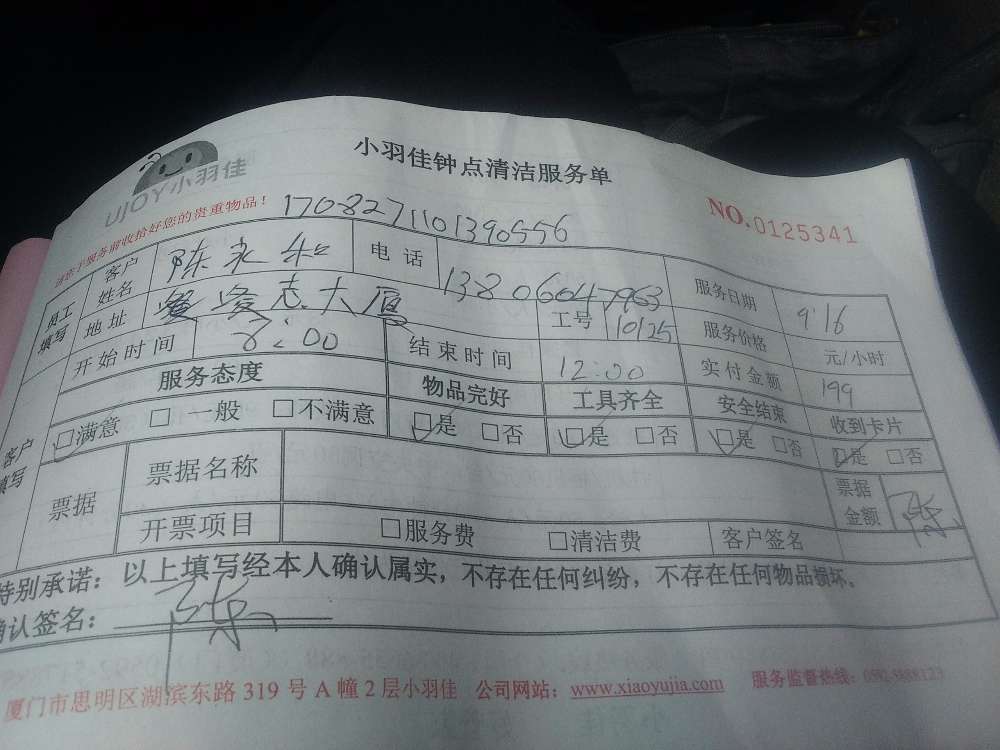 UJOY小羽佳
小羽佳钟点清洁服务单
NO.0125341
请您于服务前收拾好您的贵重物品！
1708271101390556
员工填写 客户姓名 陈永和 电话 13806047963 服务日期 9.16
地址 大厦 工号 10125 服务价格 元/小时
开始时间 8:00 结束时间 12:00 实付金额 199
客户填写 服务态度 物品完好 工具齐全 安全结束 收到卡片
☑满意 □一般 □不满意 ☑是 □否 ☑是 □否 ☑是 □否 ☑是 □否
票据 票据名称 票据金额
开票项目 □服务费 □清洁费 客户签名
特别承诺：以上填写经本人确认属实，不存在任何纠纷，不存在任何物品损坏。
确认签名：
厦门市思明区湖滨东路 319 号 A 幢 2 层小羽佳 公司网站：www.xiaoyujia.com 服务监督热线：0592-5888123